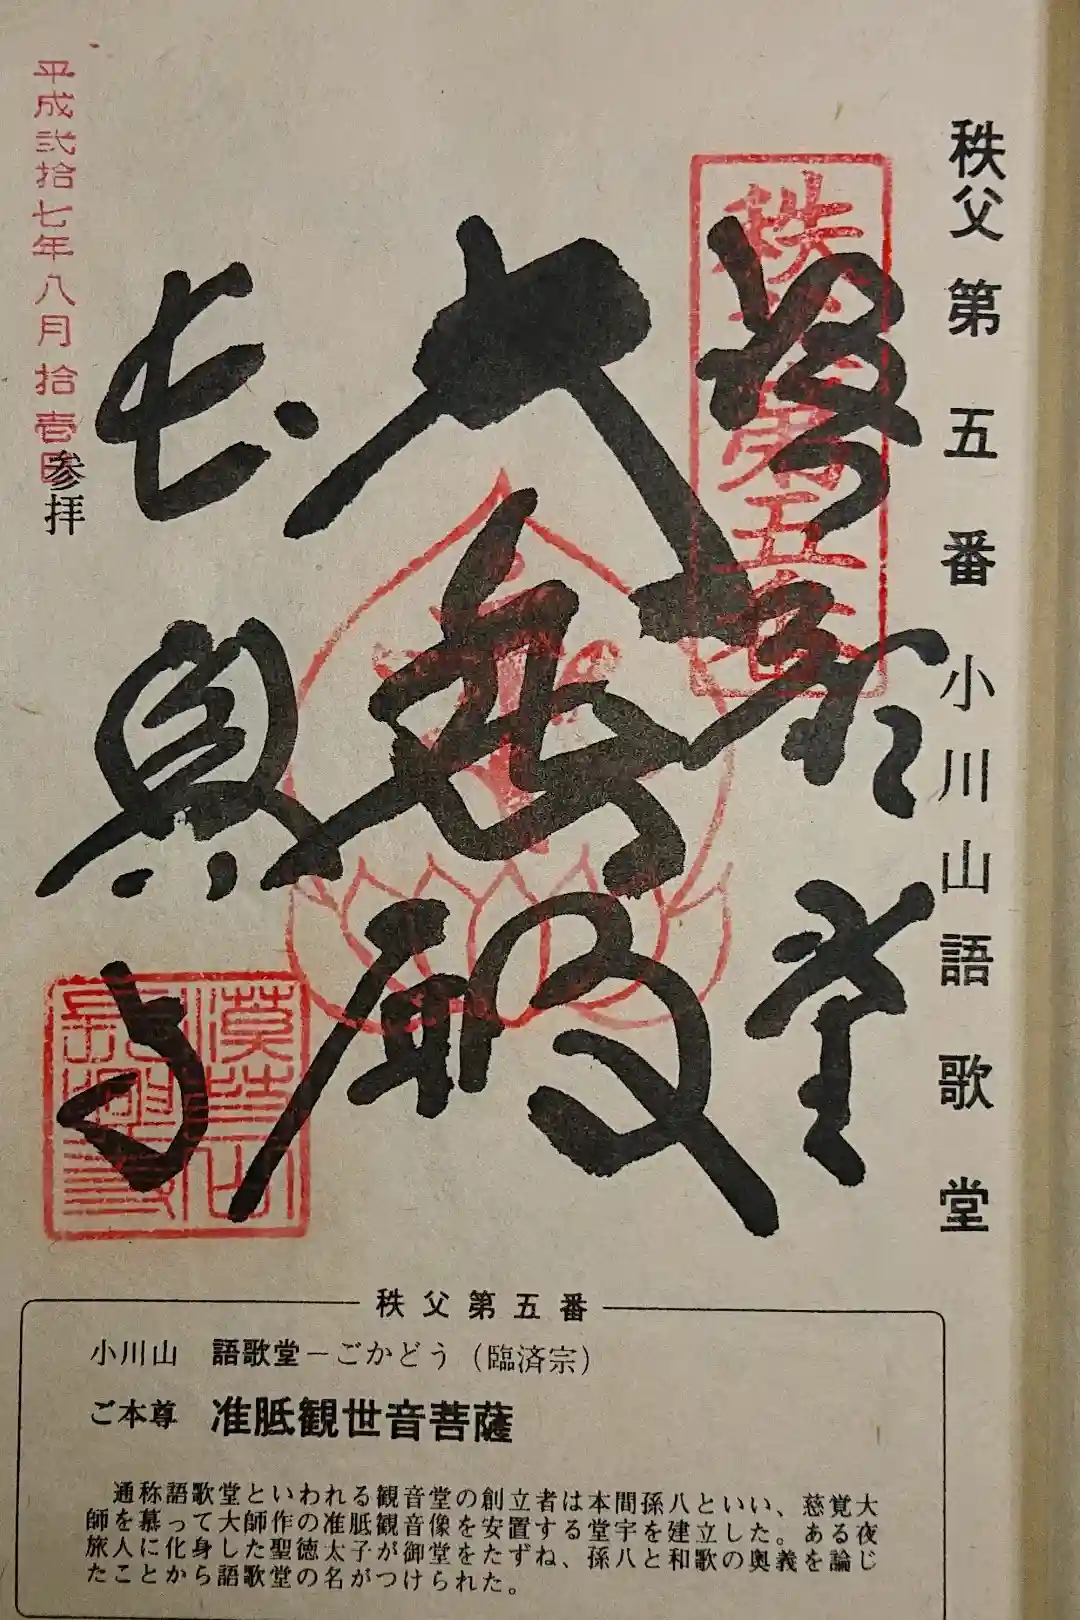 秩父第五番小川山語歌堂
秩父第五番
語歌堂
大悲殿
長興寺
平成弐拾七年八月拾壱日
参拝
秩父第五番
小川山 語歌堂－ごかどう（臨済宗）
ご本尊 准胝観世音菩薩
通称語歌堂といわれる観音堂の創立者は本間孫八といい、慈覚大
師を慕って大師作の准胝観音像を安置する堂宇を建立した。ある夜
旅人に化身した聖徳太子が御堂をたずね、孫八と和歌の奥義を論じ
たことから語歌堂の名がつけられた。